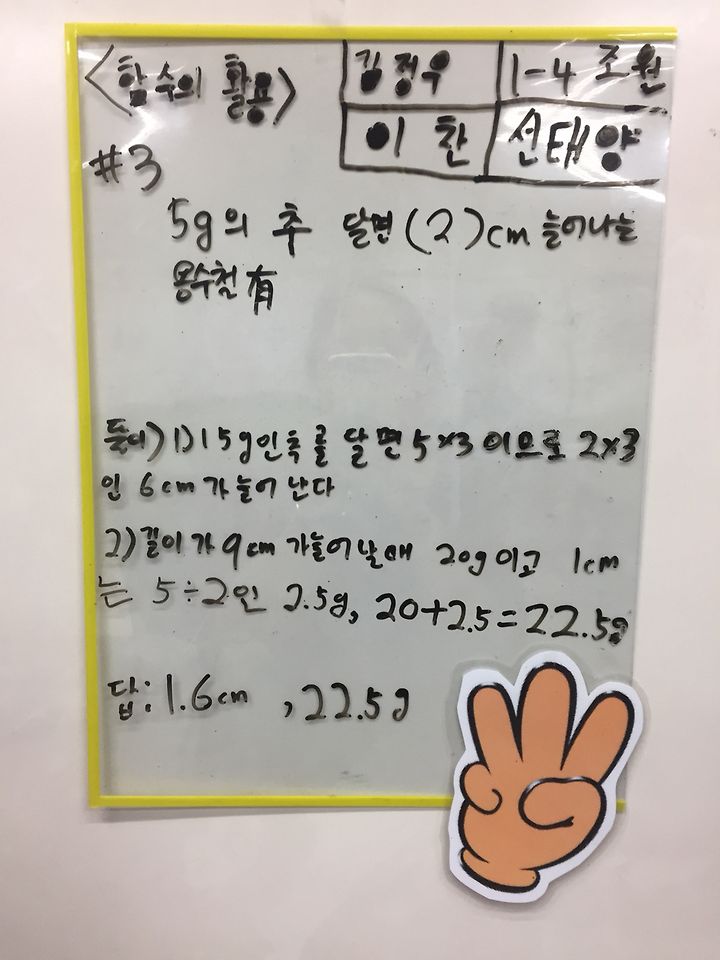 <함수의 활용>
김정우 1-4 조원
이 찬 선태양
#3
5g의 추 달면 (2)cm 늘어나는
용수철 有
풀이) 1) 15g인 추를 달면 5×3 이므로 2×3
인 6cm가 늘어 난다
2) 길이가 9cm 가늘어날때 20g이고 1cm
는 5÷2인 2.5g, 20+2.5=22.5g
답: 1.6cm , 22.5g